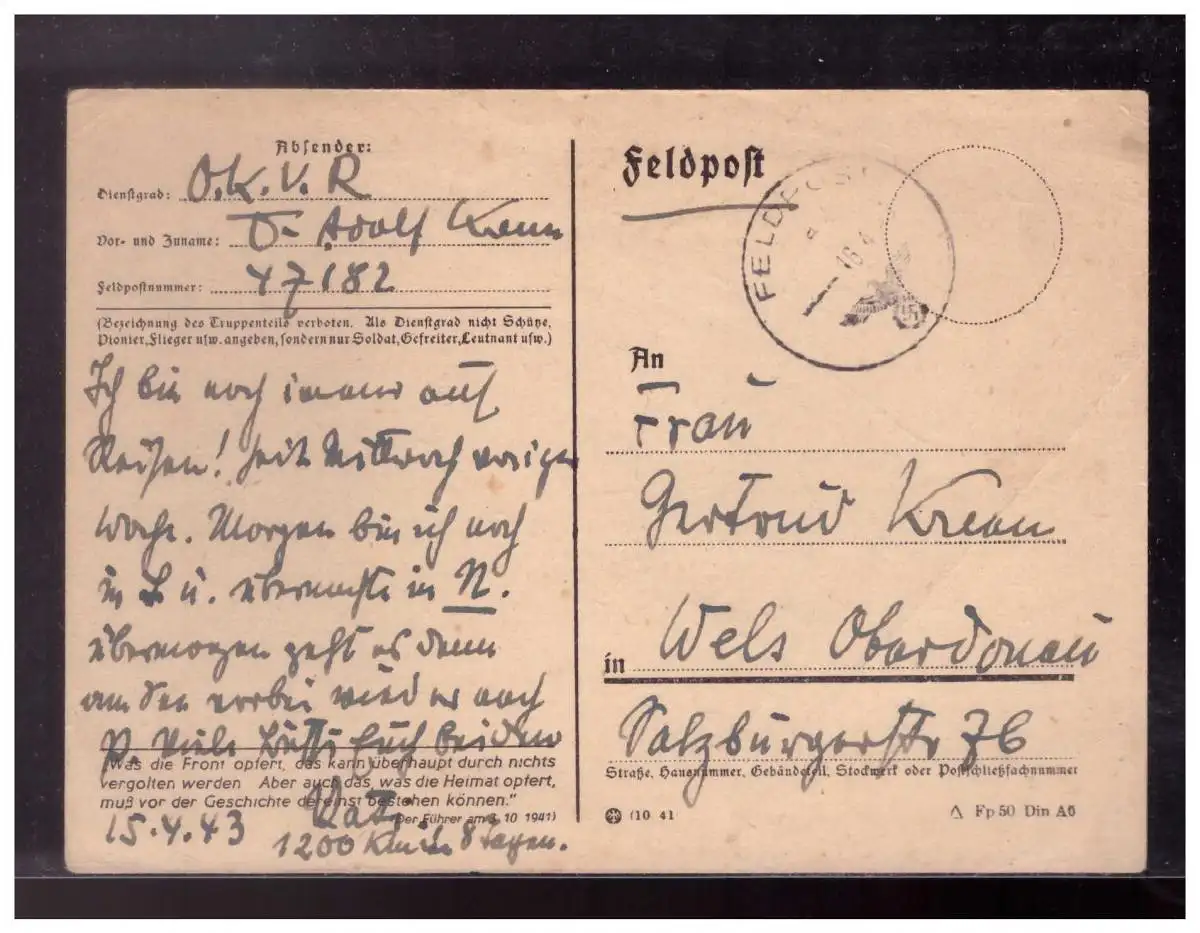 Absender:
Dienstgrad: O.K.V.R
Vor- und Zuname: Dr Adolf
Feldpostnummer: 47182
(Bezeichnung des Truppenteils verboten. Als Dienstgrad nicht Schütze,
Pionier, Flieger usw. angeben, sondern nur Soldat, Gefreiter, Leutnant usw.)
Ich bin noch immer auf
Reisen! Seit Mittwoch voriger
Woche. Morgen bin ich noch
in L u. übernachte in N.
übermorgen geht es dann
am See vorbei wieder nach
P. Viele Bussi Euch beiden
"Was die Front opfert, das kann überhaupt durch nichts
vergolten werden Aber auch das, was die Heimat opfert,
muß vor der Geschichte dereinst bestehen können."
(Der Führer am 3. 10 1941)
Vati
15.4.43
1200 Km in 8 Tagen.
Feldpost
FELDPOST
a
16.4
An
Frau
Gertrud
in Wels Oberdonau
Salzburgerstr 76
Straße, Hausnummer, Gebäudeteil, Stockwerk oder Postschließfachnummer
(10 41
Fp 50 Din A6